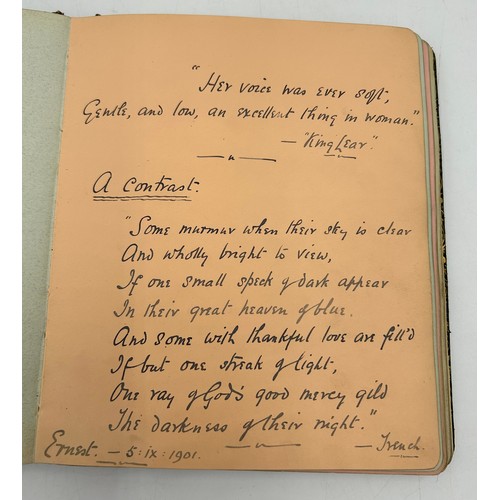 "Her voice was ever soft,
Gentle, and low, an excellent thing in woman."
— "King Lear".
A Contrast.
"Some murmur when their sky is clear
And wholly bright to view,
If one small speck of dark appear
In their great heaven of blue.
And some with thankful love are fill'd
If but one streak of light,
One ray of God's good mercy gild
The darkness of their night."
— Trench.
Ernest. — 5:ix:1901.